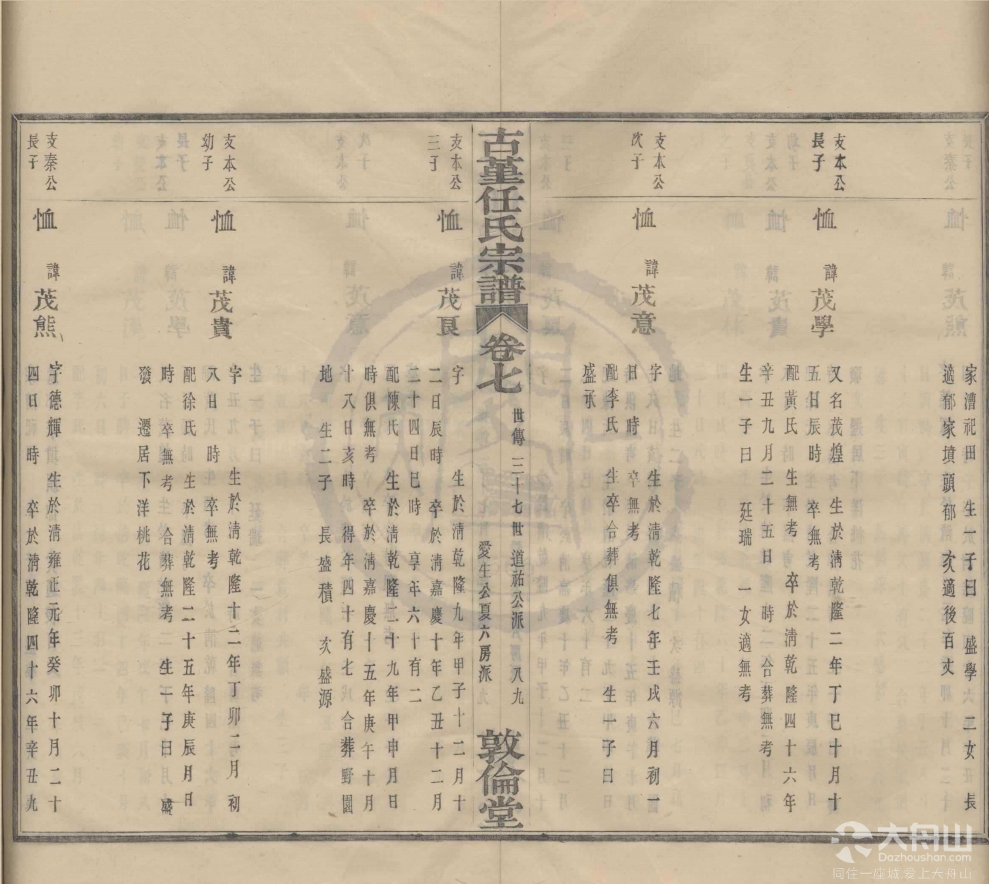 家漕祀田 生一子曰 盛學 二女 長
適郁家墳頭郁 次適後百丈
支本公
長子
恤 諱 茂學
又名茂煌 生於清乾隆二年丁巳十月十
五日辰時 卒無考
配黃氏 生無考 卒於清乾隆四十六年
辛丑九月二十五日 時 合葬無考
生一子曰 廷瑞 一女適無考
支本公
次子
恤 諱 茂意
字 生於清乾隆七年壬戌六月初一
日 時 卒無考
配李氏 生卒合葬俱無考 生一子曰
盛承
古堇任氏宗譜 卷七 世傳 三十七世 道祐公派 八九
愛生公夏六房派
敦倫堂
支本公
三子
恤 諱 茂良
字 生於清乾隆九年甲子十二月十
二日辰時 卒於清嘉慶十年乙丑十二月
二十四日巳時 享年六十有二
配陳氏 生於清乾隆二十九年甲申月日
時俱無考 卒於清嘉慶十五年庚午十月
十八日亥時 得年四十有七 合葬野園
地 生二子 長盛積 次盛源
支本公
幼子
恤 諱 茂貴
字 生於清乾隆十二年丁卯二月 初
八日 時 卒無考
配徐氏 生於清乾隆二十五年庚辰月日
時 卒無考 合葬無考 生一子曰 盛
發 遷居下洋桃花
支秦公
長子
恤 諱 茂熊
字德輝 生於清雍正元年癸卯十月二十
四日 時 卒於清乾隆四十六年辛丑九
大舟山
Dazhoushan.com
同住一座城,爱上大舟山